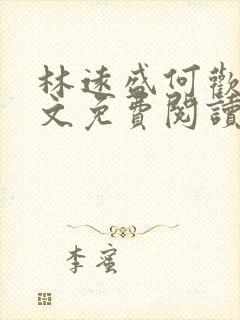 林遠盛何歡
文免費閱讀
李蜜